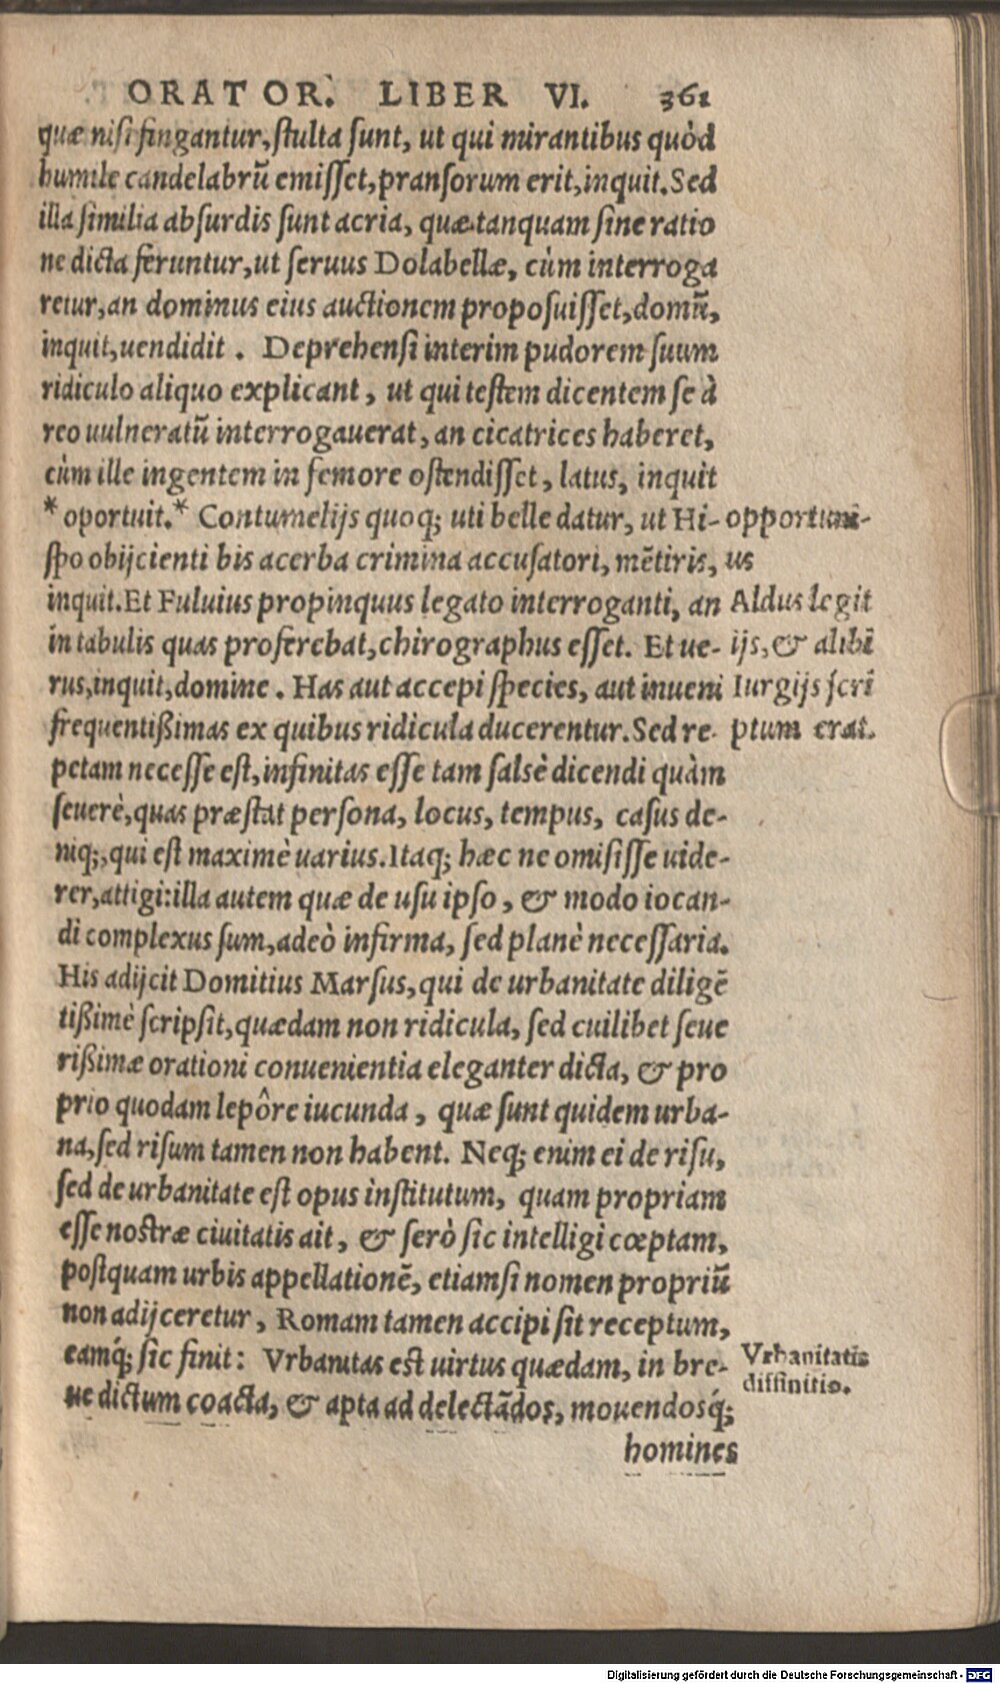 ORATOR. LIBER VI. 361
quæ nisi fingantur, stulta sunt, ut qui mirantibus quòd
humile candelabrũ emisset, pransorum erit, inquit. Sed
illa similia absurdis sunt acria, quæ tanquam sine ratio
ne dicta feruntur, ut seruus Dolabellæ, cùm interroga
retur, an dominus eius auctionem proposuisset, domũ,
inquit, uendidit. Deprehensi interim pudorem suum
ridiculo aliquo explicant, ut qui testem dicentem se à
reo uulneratũ interrogauerat, an cicatrices haberet,
cùm ille ingentem in femore ostendisset, latus, inquit
*oportuit.* Contumelijs quoq; uti belle datur, ut Hi-
spo obijcienti bis acerba crimina accusatori, mẽtiris,
inquit. Et Fuluius propinquus legato interroganti, an
in tabulis quas proferebat, chirographus esset. Et ue-
rus, inquit, domine. Has aut accepi species, aut inueni
frequentißimas ex quibus ridicula ducerentur. Sed re-
petam necesse est, infinitas esse tam salsè dicendi quàm
seuerè, quas præstat persona, locus, tempus, casus de-
niq;, qui est maximè uarius. Itaq; hæc ne omisisse uide-
rer, attigi: illa autem quæ de usu ipso, & modo iocan-
di complexus sum, adeò infirma, sed planè necessaria.
His adijcit Domitius Marsus, qui de urbanitate diligẽ
tißimè scripsit, quædam non ridicula, sed cuilibet seue
rißimæ orationi conuenientia eleganter dicta, & pro
prio quodam lepôre iucunda, quæ sunt quidem urba-
na, sed risum tamen non habent. Neq; enim ei de risu,
sed de urbanitate est opus institutum, quam propriam
esse nostræ ciuitatis ait, & serò sic intelligi cœptam,
postquam urbis appellationẽ, etiamsi nomen propriũ
non adijceretur, Romam tamen accipi sit receptum,
eamq́; sic finit: Vrbanitas est uirtus quædam, in bre-
ue dictum coacta, & apta ad delectãdos, mouendosq́;
homines
opportuni-
us
Aldus legit
ijs, & alibi
Iurgijs scri
ptum erat.
Vrbanitatis
diffinitio.
Digitalisierung gefördert durch die Deutsche Forschungsgemeinschaft - DFG